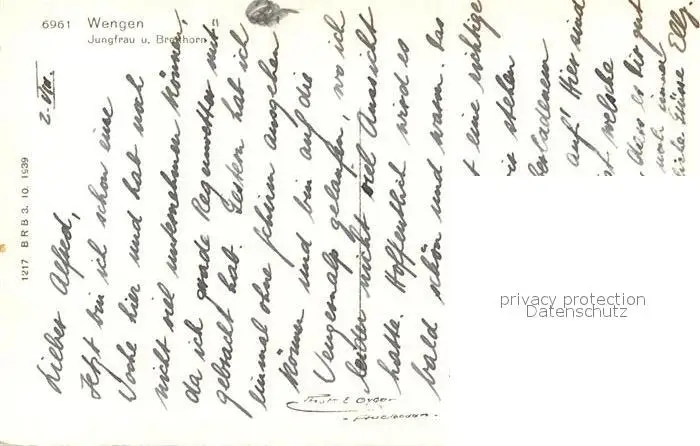 6961 Wengen
Jungfrau u. Breithorn
1217 BRB 3. 10. 1939
2. VIII.
Lieber Alfred,
Jetzt bin ich schon eine
Woche hier und hab noch
nicht viel unternehmen können,
da ich grade Regenwetter mit-
gebracht hab. Gestern hab ich
einmal ohne ausgehen
können und bin auf die
Wengernalp gelaufen, wo ich
leider nicht viel Aussicht
hatte. Hoffentlich wird es
bald schön und warm. Das
t eine richtige
stehen
auf! Hier sind
st welche
dass es Dir gut
noch immer
liebe Grüsse Elly.
Phot. E. Gyger
- Adelboden -
privacy protection
Datenschutz